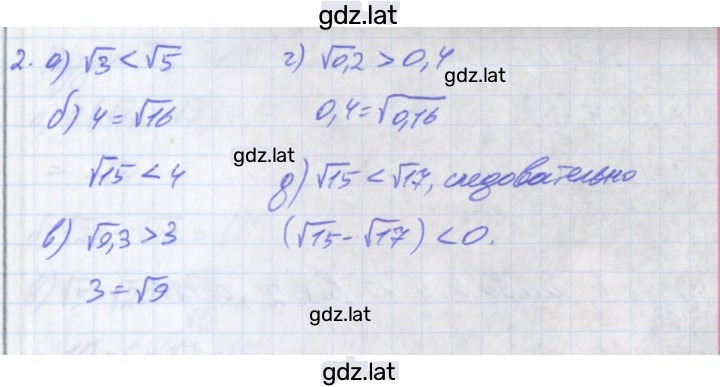 gdz.lat
2. а) √3 < √5
б) 4 = √16
√15 < 4
в) √9,3 > 3
3 = √9
г) √0,2 > 0,4
gdz.lat
0,4 = √0,16
gdz.lat
д) √15 < √17, следовательно
(√15 - √17) < 0.
gdz.lat
gdz.lat